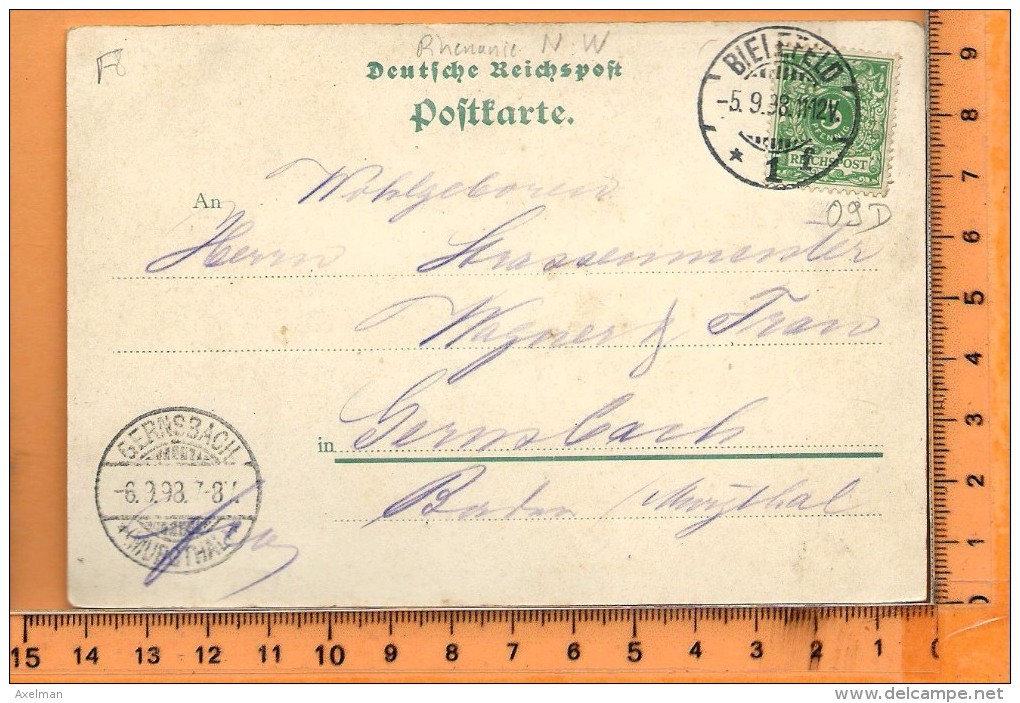 F8
Rhenanie N.W
Deutsche Reichspost
Postkarte.
BIELEFELD
-5.9.98.11-12V.
* 1 f
5
REICHSPOST
09D
Wohlgeboren
An Herrn Strassenmeister
Wagner & Frau
in Gernsbach
Baden /Murgthal
GERNSBACH.
-6.9.98.7-8V.
* (MURGTHAL)
9
8
7
6
5
4
3
2
1
0
15 14 13 12 11 10 9 8 7 6 5 4 3 2 1 0
Axelman
www.delcampe.net